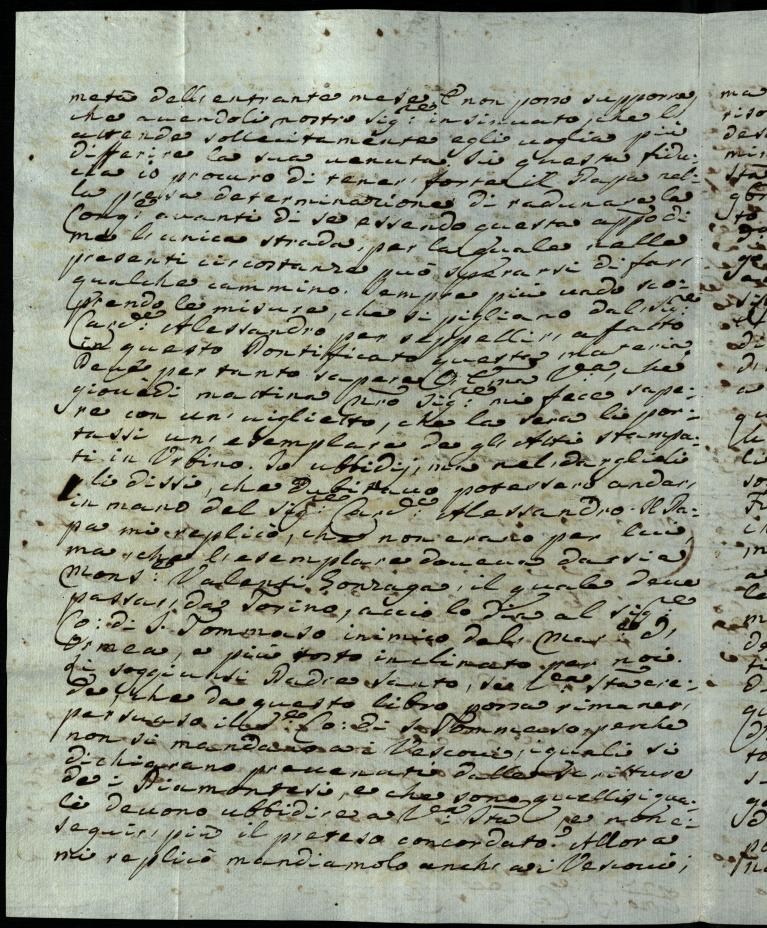 metà dell'entrante mese. E non posso supporre,
che avendoli nostro Sig.re insinuato, che lo
attende sollecitamente egli voglia più
differire la sua venuta. Su questa fidu=
cia io procuro di tener forte il Papa nel=
la presa determinazione di radunare la
Cong.e avanti di se essendo questa appo di
me l'unica strada, per la quale nelle
presenti circostanze può sperarsi di fare
qualche cammino. Sempre più vado sco=
prendo le misure, che si pigliano dal Sig.re
Card.le Alessandro per seppellire affatto
in questo Pontificato questa materia.
Deve per tanto sapere che
giovedì mattina Nro Sig.re mi fece sape=
re con un viglietto, che la sera li por=
tassi un' esemplare de gl'Atti stampa=
ti in Urbino. Io ubbidij, ma nel darglieli
li dissi, che dubitavo potessero andare
in mano del Sig.re Card.le Alessandro. Il Pa=
pa mi replicò, che non erano per lui,
ma che l'esemplare doveva darsi a
Mons.r Valenti Gonzaga, il quale deve
passar da Torino, acciò lo dia al Sig.re
Co: di S. Tommaso inimico del Mar.se d'
Ormea, e più tosto inclinato per noi.
Li soggiunsi Padre Santo, se V.ra S.tà cre=
de, che da questo libro possa rimaner
persuaso il Co: di S. Tommaso, perche
non si manda a i Vescovi, i quali si
dichiarano prevenuti dalle scritture
de i Piamontesi, e che sono quelli, i qua=
li devono ubbidire a V.ra S.tà, e non e=
seguir più il preteso concordato? Allora
mi replicò mandiamolo anche a i Vescovi;